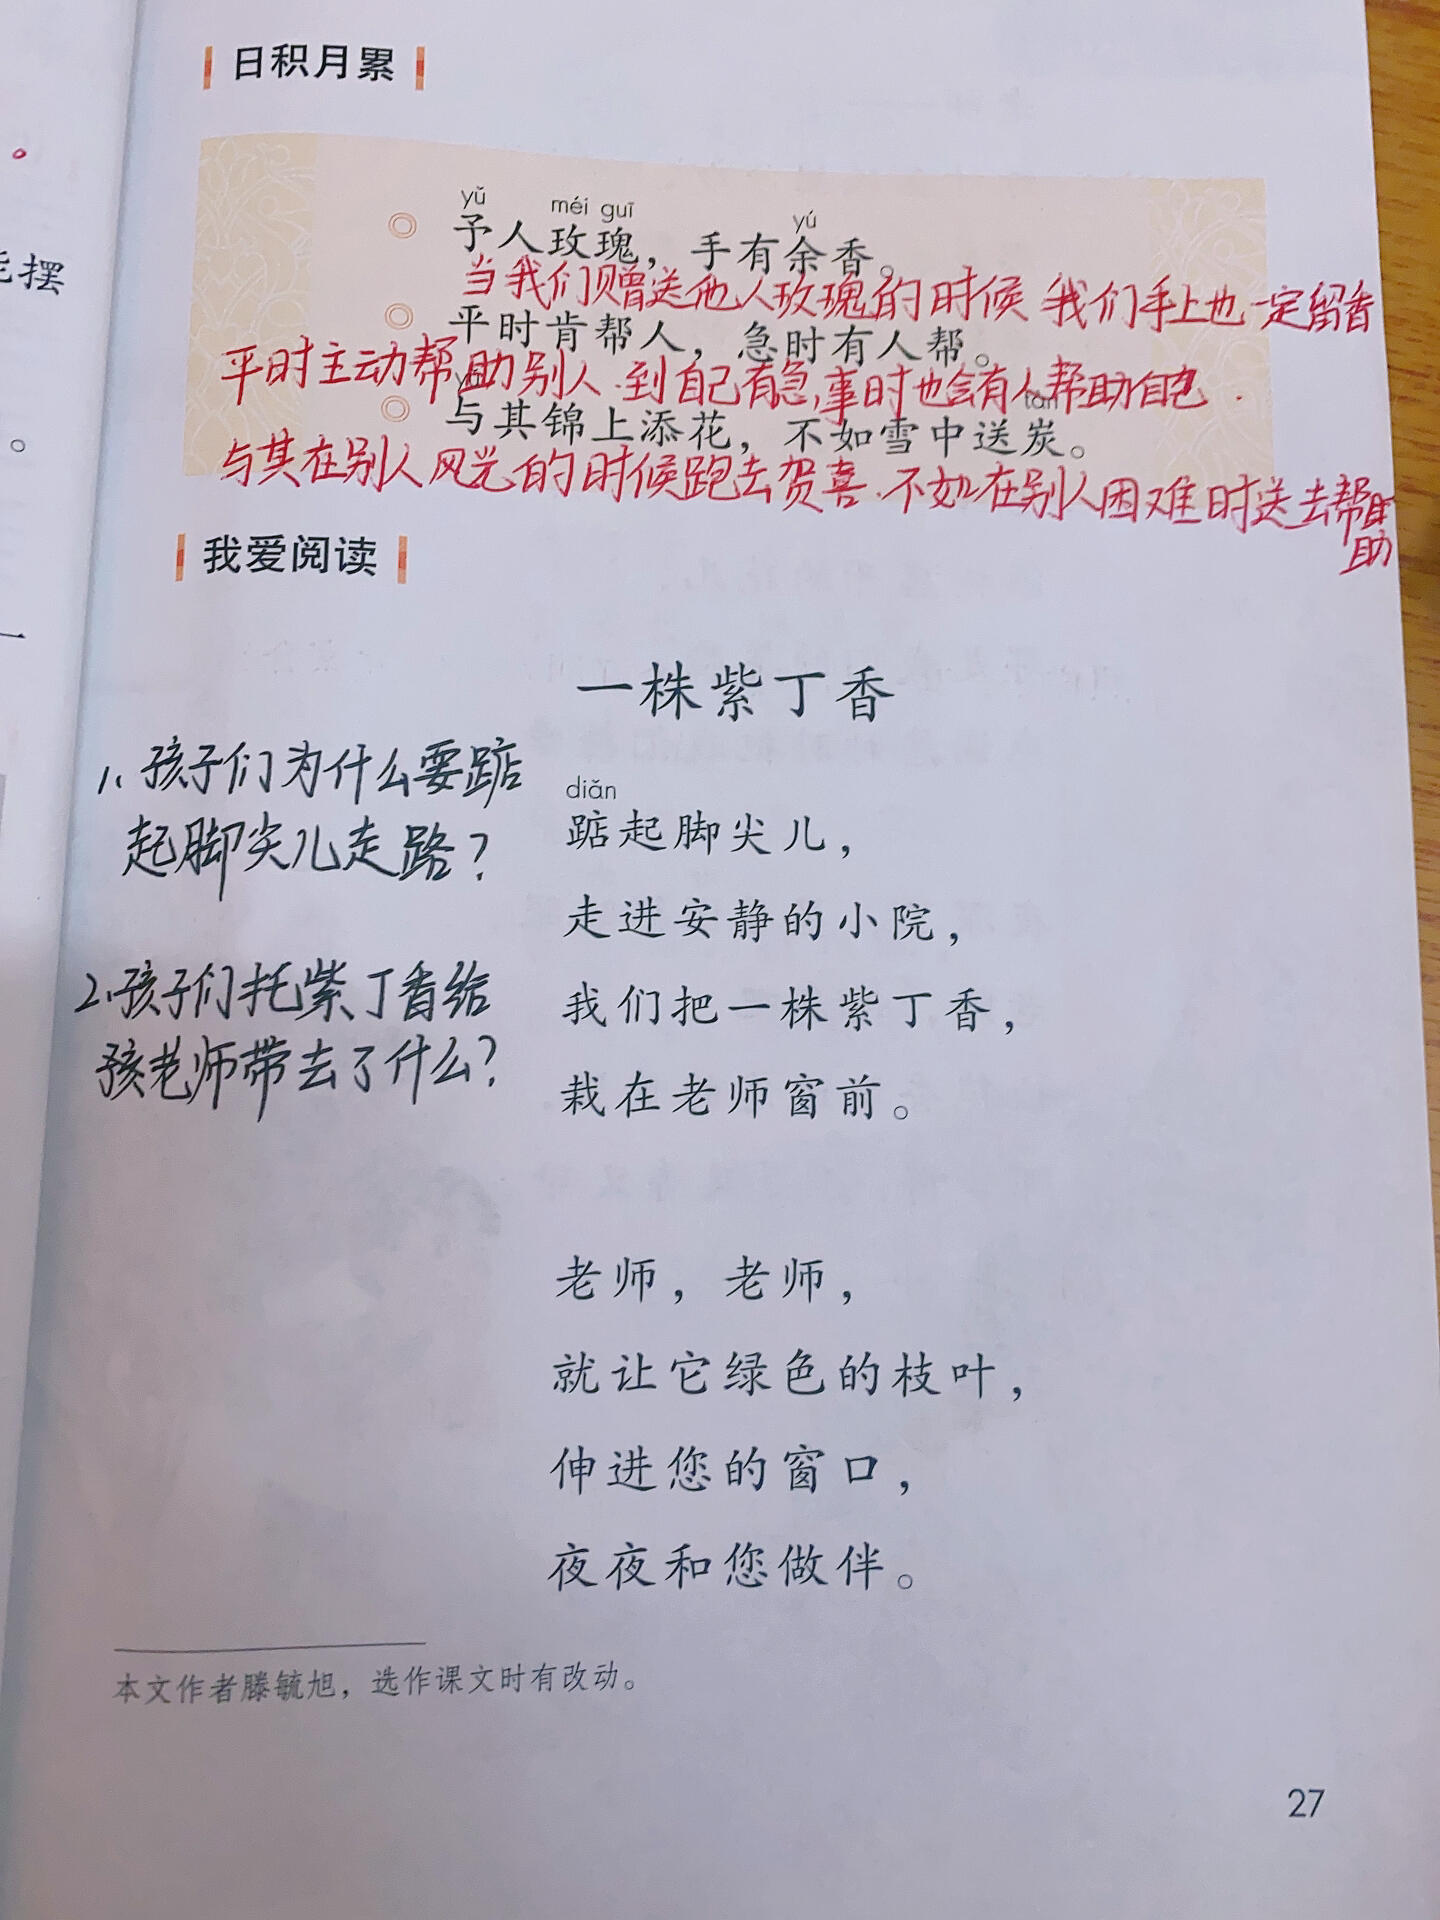 日积月累
。
能摆
yǔ méi guī yú
予人玫瑰，手有余香。
当我们赠送他人玫瑰的时候 我们手上也一定留香
平时肯帮人，急时有人帮。
平时主动帮助别人.到自己有急事时也会有人帮助自己.
tàn
与其锦上添花，不如雪中送炭。
与其在别人风光的时候跑去贺喜.不如在别人困难时送去帮助
助
。
我爱阅读
一
一株紫丁香
1、孩子们为什么要踮
起脚尖儿走路？
diǎn
踮起脚尖儿，
走进安静的小院，
2、孩子们托紫丁香给
孩老师带去了什么？
我们把一株紫丁香，
栽在老师窗前。
老师，老师，
就让它绿色的枝叶，
伸进您的窗口，
夜夜和您做伴。
本文作者滕毓旭，选作课文时有改动。
27